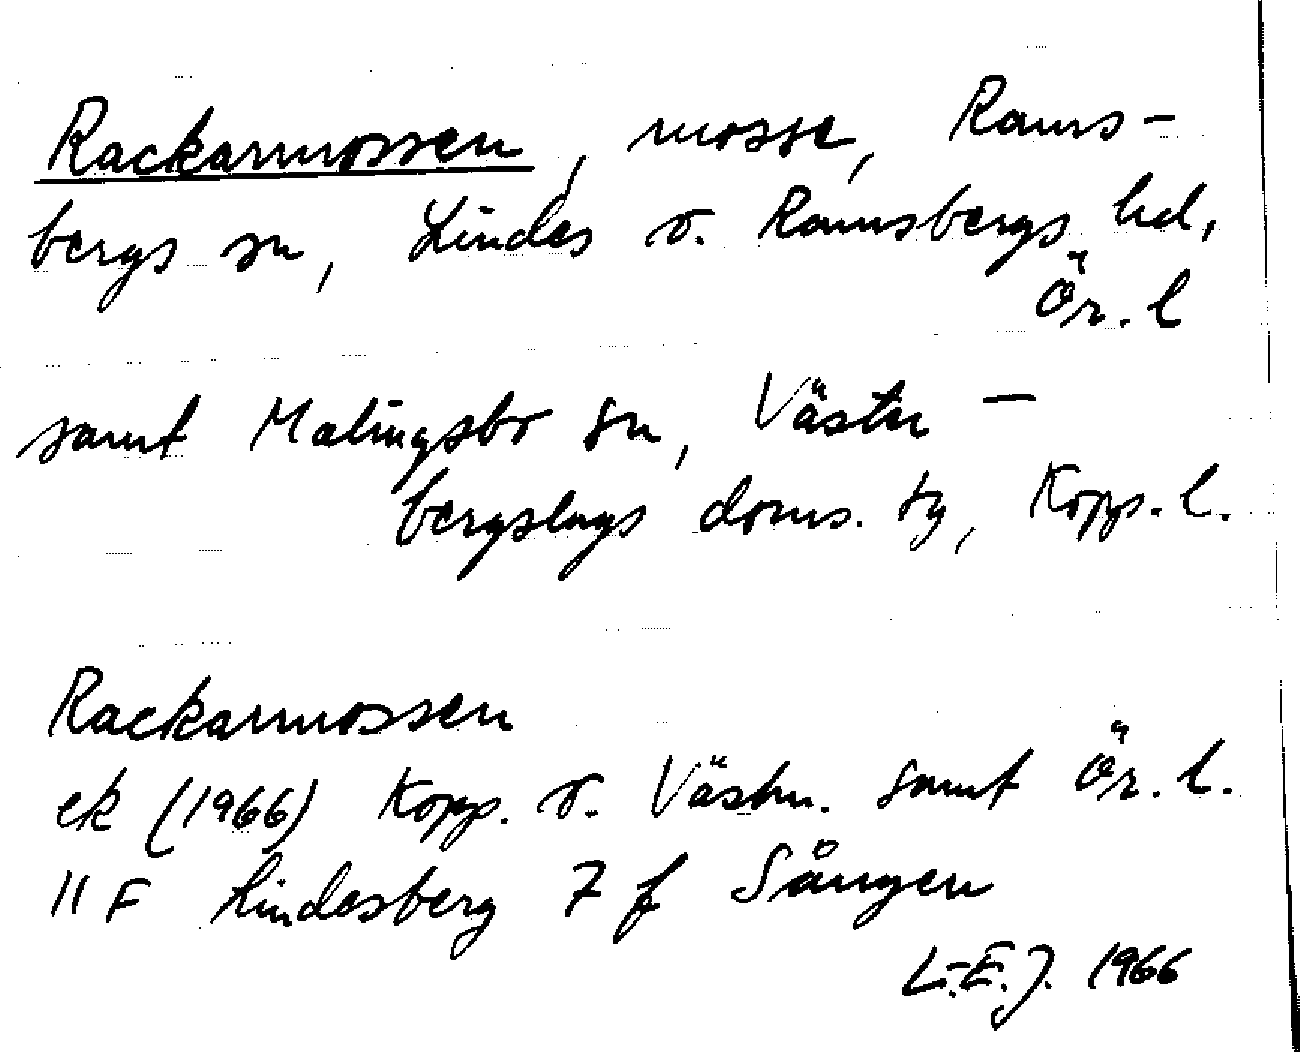 Rackarmossen, mosse, Rams-
bergs sn, Lindes o. Ramsbergs hd,
Ör. l
samt Malingsbo sn, Väster-
bergslags doms. tg, Kopp. l.
Rackarmossen
ek (1966) Kopp. o. Västm. samt Ör. l.
11 F Lindesberg 7 f Sången
L.-E.J. 1966